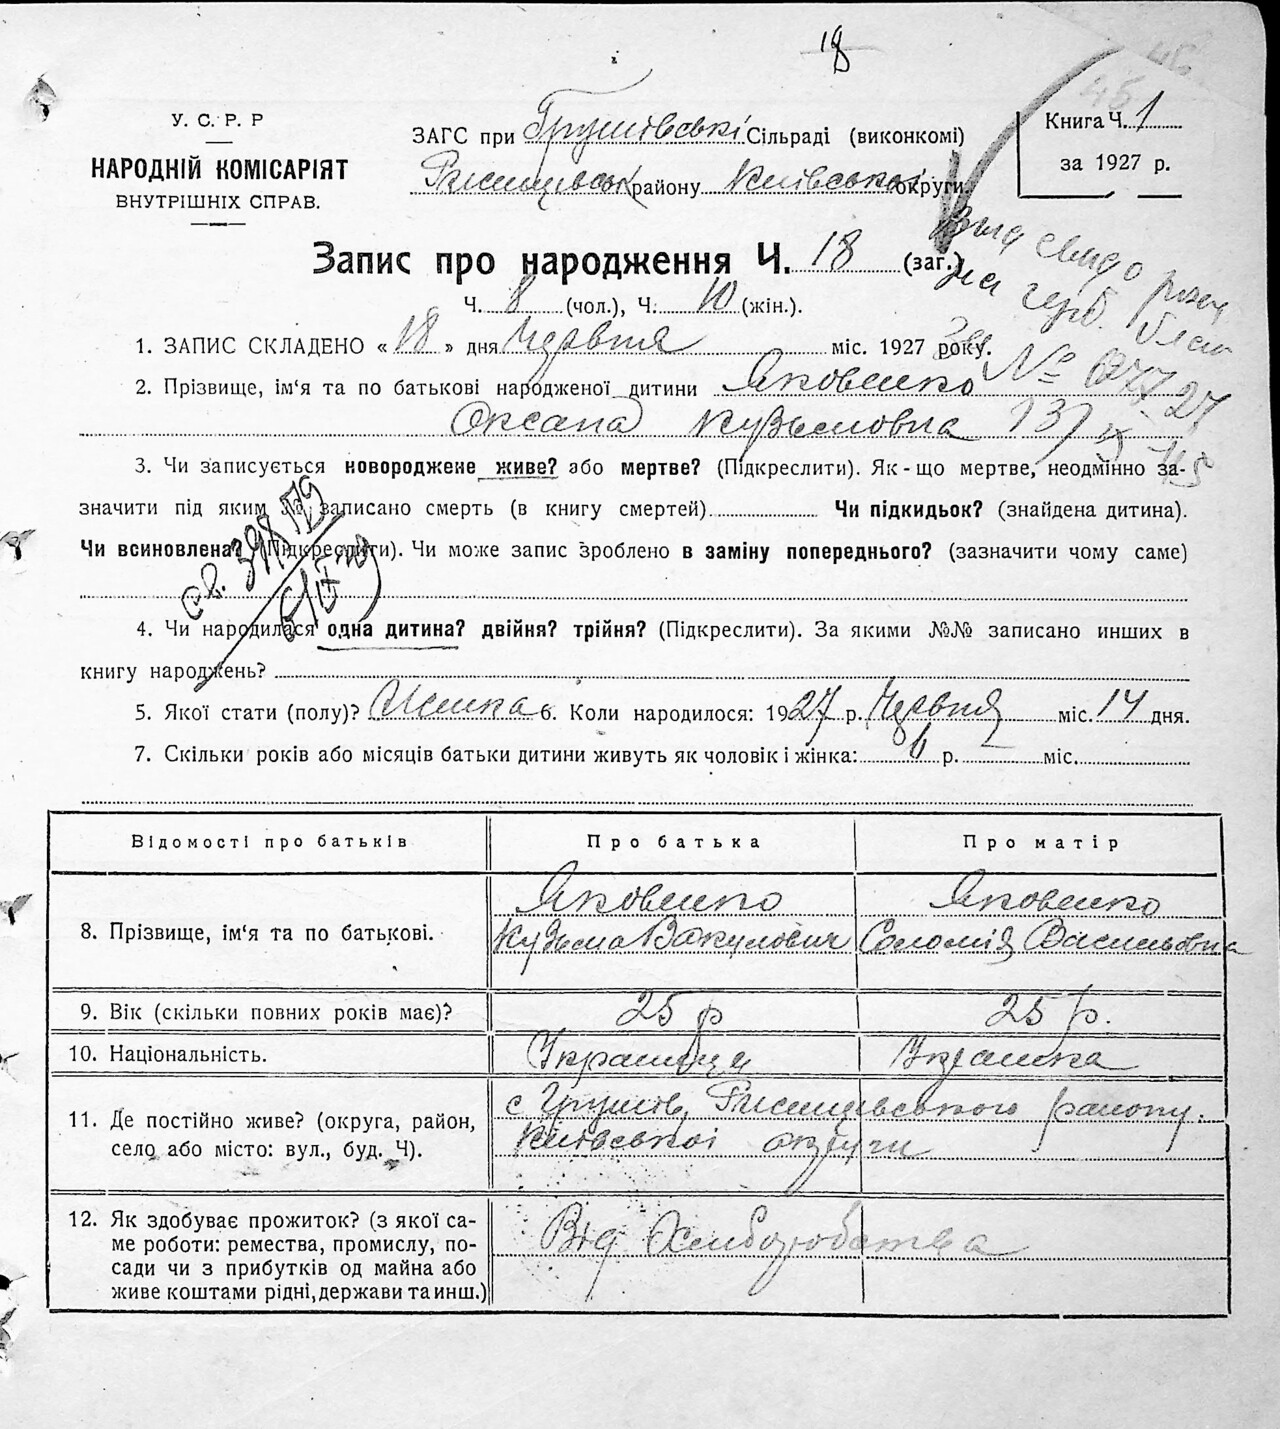 18
45
45
У. С. Р. Р
НАРОДНІЙ КОМІСАРІЯТ
ВНУТРІШНІХ СПРАВ.
ЗАГС при Грушівські Сільраді (виконкомі)
Ржищівськ району Київської округи.
Книга Ч. 1
за 1927 р.
Запис про народження Ч. 18 (заг.)
Ч. 8 (чол.), Ч. 10 (жін.).
Выд свид о рожд
на герб. блан
№ 677 27
13/IX 45
1. ЗАПИС СКЛАДЕНО « 18 » дня Червня міс. 1927 року.
2. Прізвище, ім'я та по батькові народженої дитини Яковенко
Оксана Кузьмовна
3. Чи записується новороджене живе? або мертве? (Підкреслити). Як-що мертве, неодмінно за-
значити під яким № записано смерть (в книгу смертей) Чи підкидьок? (знайдена дитина).
Чи всиновлена? (Підкреслити). Чи може запис зроблено в заміну попереднього? (зазначити чому саме)
4. Чи народилася одна дитина? двійня? трійня? (Підкреслити). За якими №№ записано инших в
книгу народжень?
5. Якої стати (полу)? Жінка 6. Коли народилося: 1927 р. Червня міс. 14 дня.
7. Скільки років або місяців батьки дитини живуть як чоловік і жінка: 6 р. — міс.
Відомості про батьків Про батька Про матір
8. Прізвище, ім'я та по батькові. Яковенко Яковенко
Кузьма Вакулович Соломія Васильовна
9. Вік (скільки повних років має)? 25 р 25 р.
10. Національність. Українця Українка
11. Де постійно живе? (округа, район,
село або місто: вул., буд. Ч).
с Грушів, Ржищівського району.
Київської округи
12. Як здобуває прожиток? (з якої са-
ме роботи: ремества, промислу, по-
сади чи з прибутків од майна або
живе коштами рідні, держави та инш.)
Від Хлиборобства